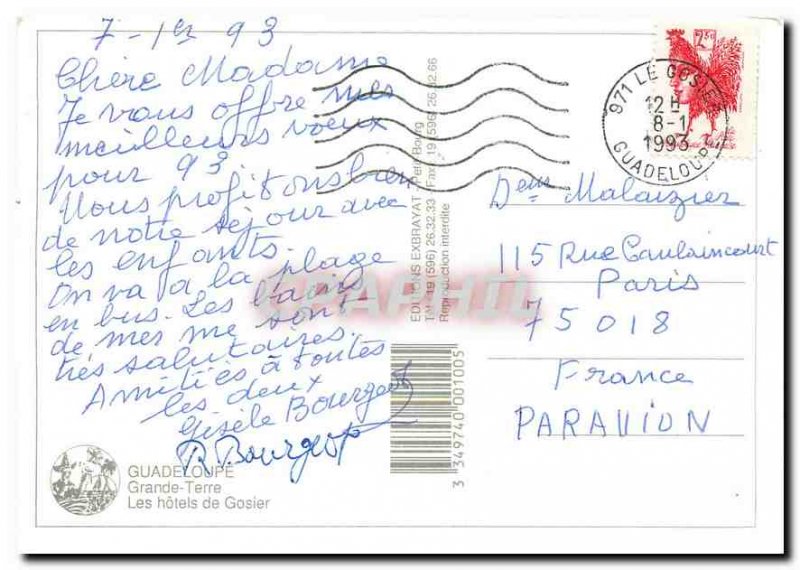 7-1er 93
Chère Madame
Je vous offre mes
meilleurs voeux
pour 93.
Nous profitons bien
de notre séjour avec
les enfants.
On va a la plage
en bus. Les bains
de mer me sont
très salutaires.
Amitiés à toutes
les deux
Gisèle Bourgeot
R Bourgeot
GUADELOUPE
Grande-Terre
Les hôtels de Gosier
EDITIONS EXBRAYAT - Petit Bourg
Tél. 19 (596) 26.32.33 - Fax. 19 (596) 26.32.66
Reproduction interdite
3 349740 001005
CPAPHIL
971 LE GOSIER
12H
8-1
1993
GUADELOUPE
Malaizier
115 Rue Caulaincourt
Paris
75018
France
PARAVION